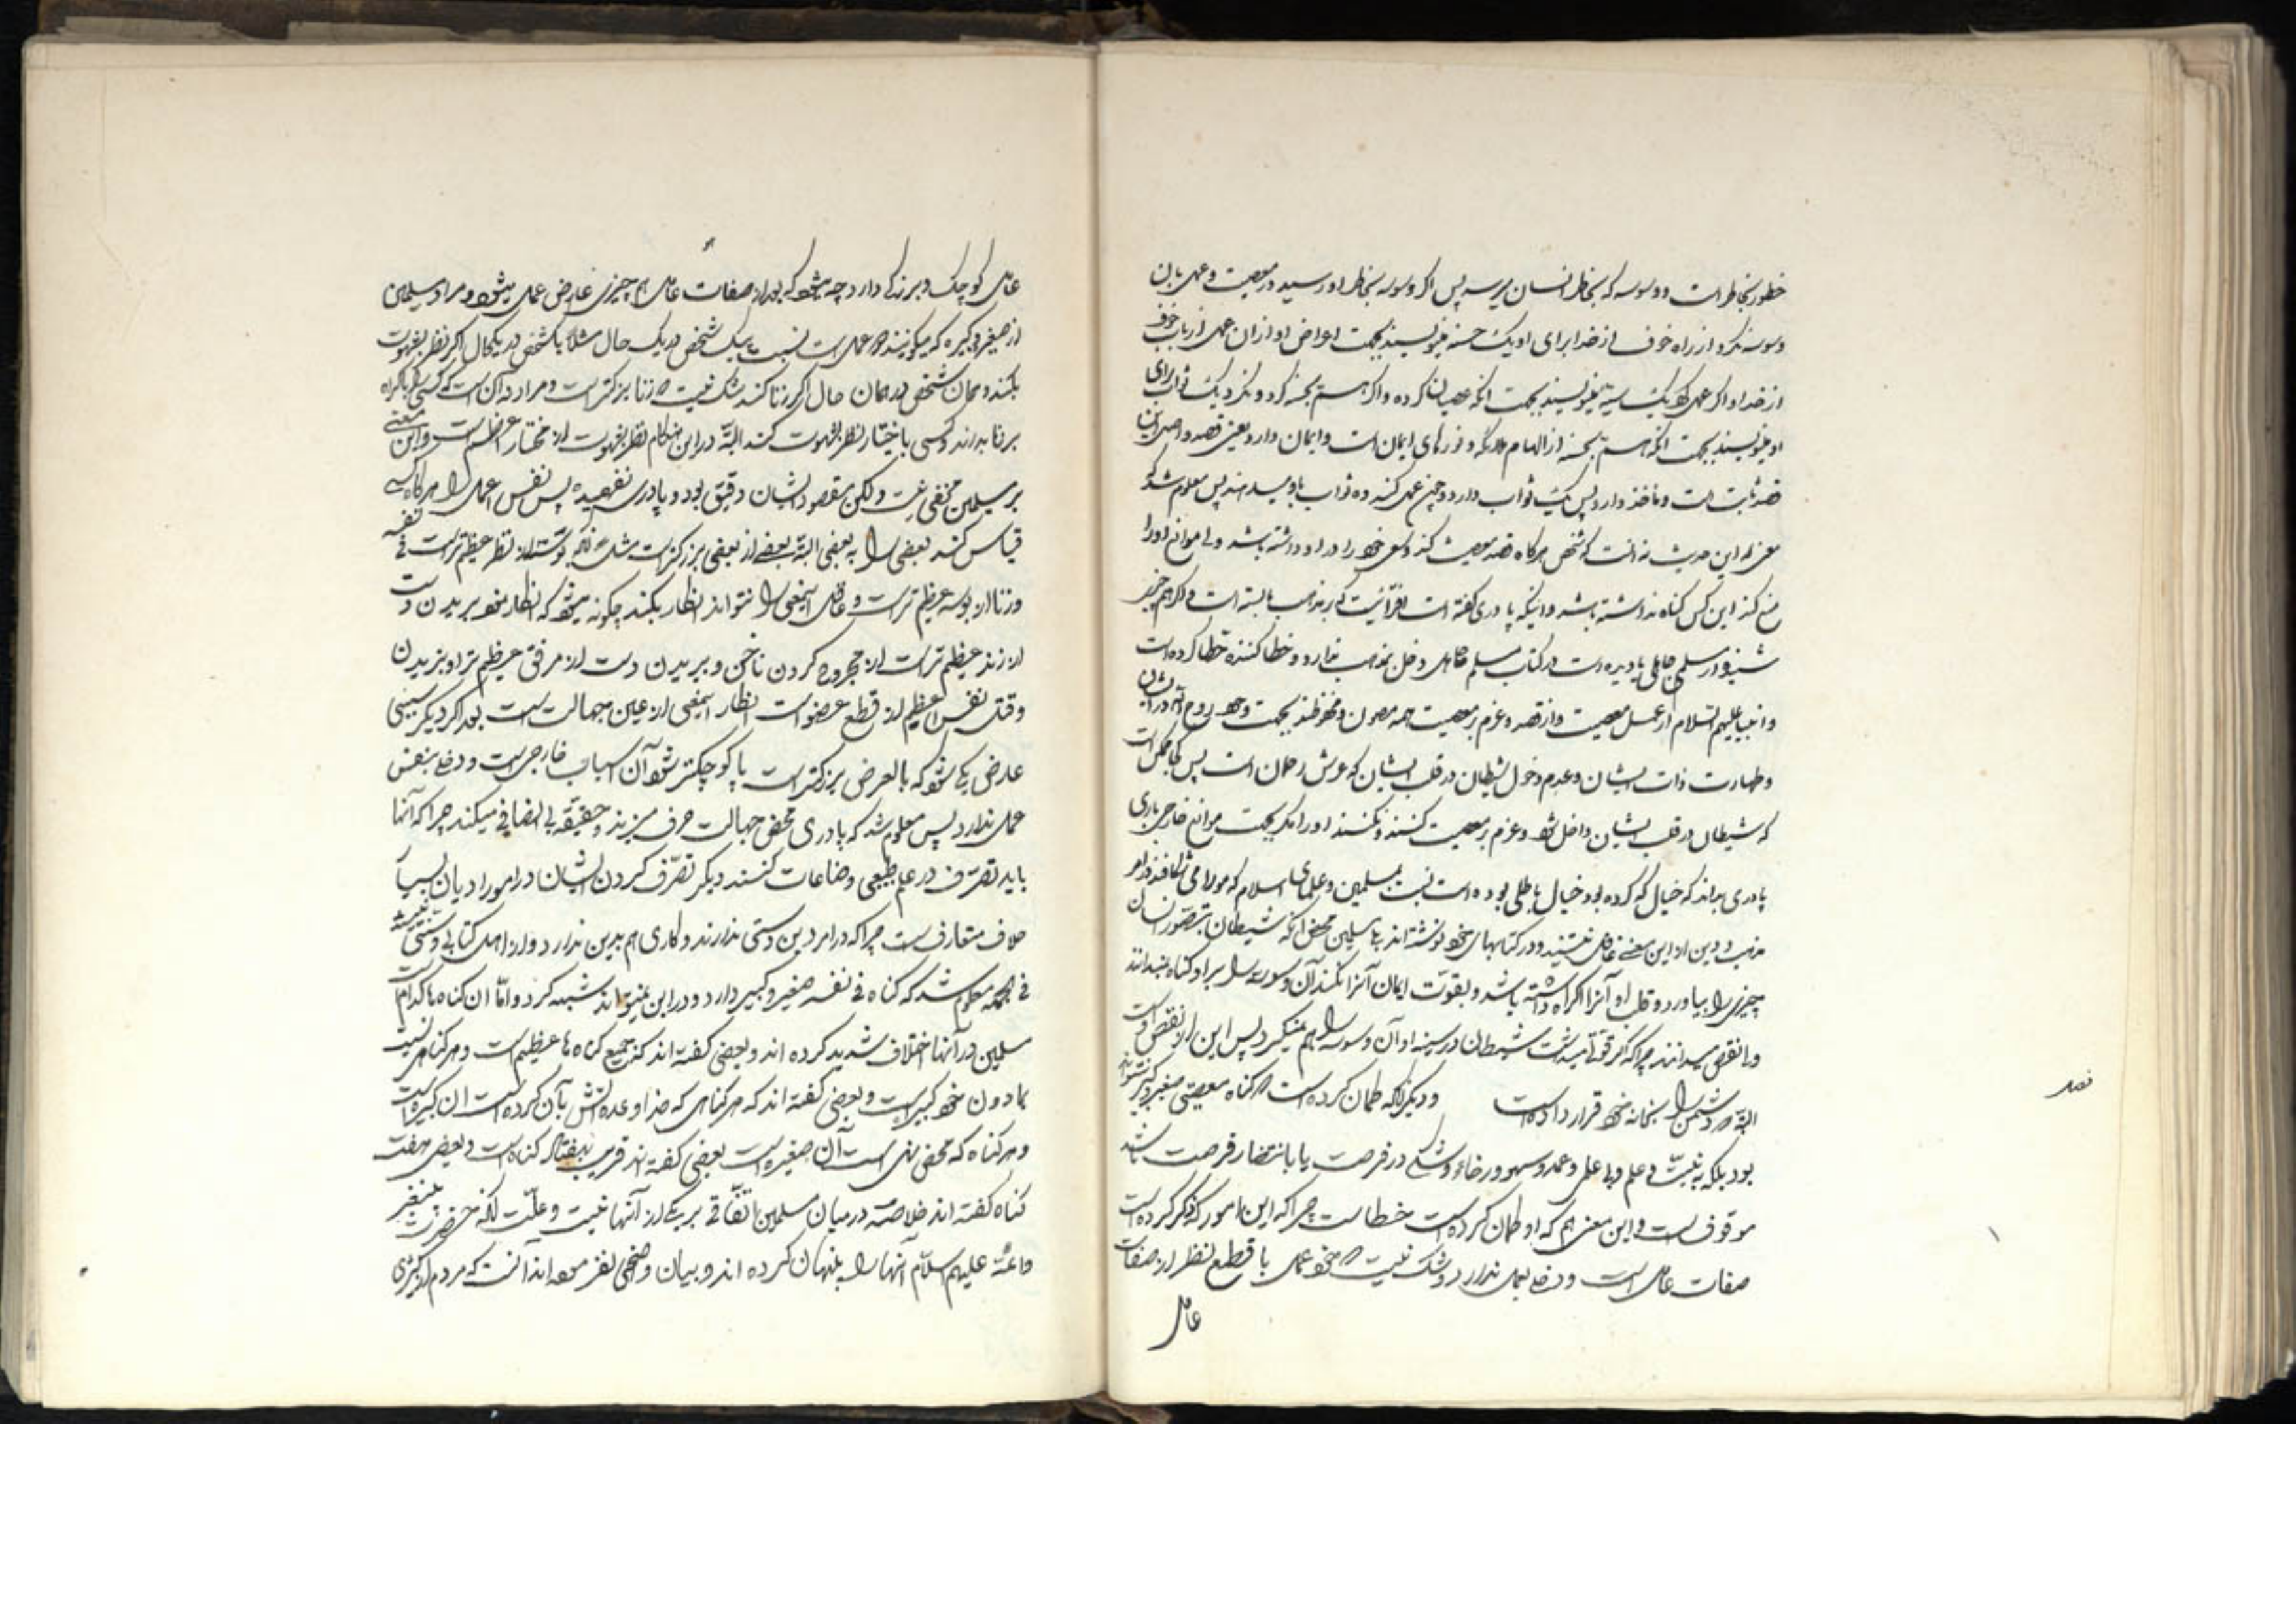 خطور بخاطر است و وسوسه که بخاطر انسان میرسد پس اگر وسوسه بخاطر او رسید در معصیت و عمل بان
وسوسه نکرد از راه خوف از خدا برای او یک حسنه مینویسند بجهت اعراض او از آن عمل از باب خوف
از خدا و اگر عمل کرد یک سیئه مینویسند بجهت آنکه عصیان کرده و اگر هم بحسنه کرد و نکرد یک ثواب برای
او مینویسند بجهت آنکه هم بحسنه از الهام ملائکه و نورهای ایمان است و ایمان دارد یعنی قصد و اصل این
قصد ثابت است و ماخذ دارد پس یک ثواب دارد و چون عمل کند ده ثواب باو میدهند پس معلوم شد که
معنی این حدیث نه آنست که شخص هرگاه قصد معصیت کند و سعی خود را در او داشته باشد ولی موانع او را
منع کند این کس گناه نداشته باشد و اینکه پادری گفته است افترائیست که بر مذهب ما بسته است و اگر هم چیزی
شنیده از مسلم جاهلی یا دیده است در کتاب مسلم جاهل دخلی بمذهب ندارد و خطا کننده خطا کرده است
و انبیا علیهم السلام از عمل معصیت و از قصد و عزم بر معصیت همه مصون و محفوظند بجهت وجود روح در ایشان
و طهارت ذات ایشان و عدم دخول شیطان در قلب ایشان که عرش رحمان است پس کجا ممکن است
که شیطان در قلب ایشان داخل شود و عزم بر معصیت کنند و نکنند او را مگر بجهت موانع خارجی باری
پادری بداند که خیال که کرده بود خیال باطلی بوده است نسبت بمسلمین و علمای اسلام که مو را می شکافند در امر
مذهب و دین از این معنی غافل نیستند و در کتابهای خود نوشته اند بلی مسلمین محض آنکه شیطان بتصور انسان
چیزی را بیاورد و قلب او آنرا اکراه داشته باشد و بقوت ایمان آنرا نکند آن وسوسه را بر او گناه نمیدانند
و نقص میدانند چرا که اگر قوتی میداشت شیطان در سینه او آن وسوسه را هم نمیکرد پس این از نقص او است
البته که دشمن را بخانه خود قرار داده است و دیگر آنکه گمان کرده است که گناه معصیتی صغیر و کبیر نتواند
بود بلکه به نسبت بی علم و با علم و عمد و سهو و رضا و در فرصت یا بانتظار فرصت باشد
موقوف است و این معنی هم که او گمان کرده است خطاست چرا که این امور که ذکر کرده است
صفات عامل است و دخلی بعمل ندارد و شک نیست که خود عمل با قطع نظر از صفات
عامل
قصد
عامل کوچک و بزرگ دارد چه میشود که بعد از صفات عامل هم چیزی عارض عمل میشود و مراد مسلمین
از صغیره و کبیره که میگویند در عمل است نسبت به یک شخص در یک حال مثلا یک شخص در یکحال اگر نظر بشهوت
بکند و همان شخص در همان حال اگر زنا کند شک نیست که زنا بزرگتر است و مراد نه آن است که کسی را باکراه
بر زنا بدارند و کسی باختیار نظر بشهوت کند البته در این هنگام نظر بشهوت از مختار اعظم است و این معنی
بر مسلمین مخفی نیست ولکن مقصود ایشان دقیق بود و پادری نفهمیده پس نفس اعمال را هرگاه کسی
قیاس کند بعضی را به بعضی البته بعضی از بعضی بزرگتر است مثل آنکه بوسه از نظر عظیم تر است فی نفسه
و زنا از بوسه عظیم تر است و عاقل این معنی را نتواند انکار بکند چگونه میشود که انکار نمود بریدن دست
از زند عظیم تر است از مجروح کردن ناخن و بریدن دست از مرفق عظیم تر از بریدن
و قتل نفس اعظم از قطع عضو است انکار این معنی از عین جهالت است بعد اگر دیگر سببی
عارض یکی شود که بالعرض بزرگتر است یا کوچکتر شود آن اسباب خارجی است و دخلی بنفس
عمل ندارد پس معلوم شد که پادری محض جهالت حرف میزند و حقیقة بی انصافی میکند چرا که آنها
باید تصرف در علم طبیعی و صناعات کنند دیگر تصرف کردن ایشان در امور ادیان بسیار
خلاف متعارف است چرا که در امر دین دستی ندارند و کاری هم بدین ندارد و از اهل کتابی و سنتی نیستند
فی الجمله معلوم شد که گناه فی نفسه صغیر و کبیر دارد و در این نمیتواند شبهه کرد و اما آن گناه ها کدام است
مسلمین در آنها اختلاف شدید کرده اند و بعضی گفته اند که جمیع گناه ها عظیم است و هر گناهی نسبت
بمادون خود کبیر است و بعضی گفته اند که هر گناهی که خدا وعده آتش بآن کرده است آن کبیره است
و هر گناه که محض نهی است آن صغیره است بعضی گفته اند قریب بهفتاد گناه است و بعضی هفت
گناه گفته اند خلاصه در میان مسلمین اتفاقی بر یکی از آنها نیست و علت آنکه حضرت پیغمبر
و ائمه علیهم السلام آنها را پنهان کرده اند و بیان واضحی نفرموده اند آنست که مردم از کبری